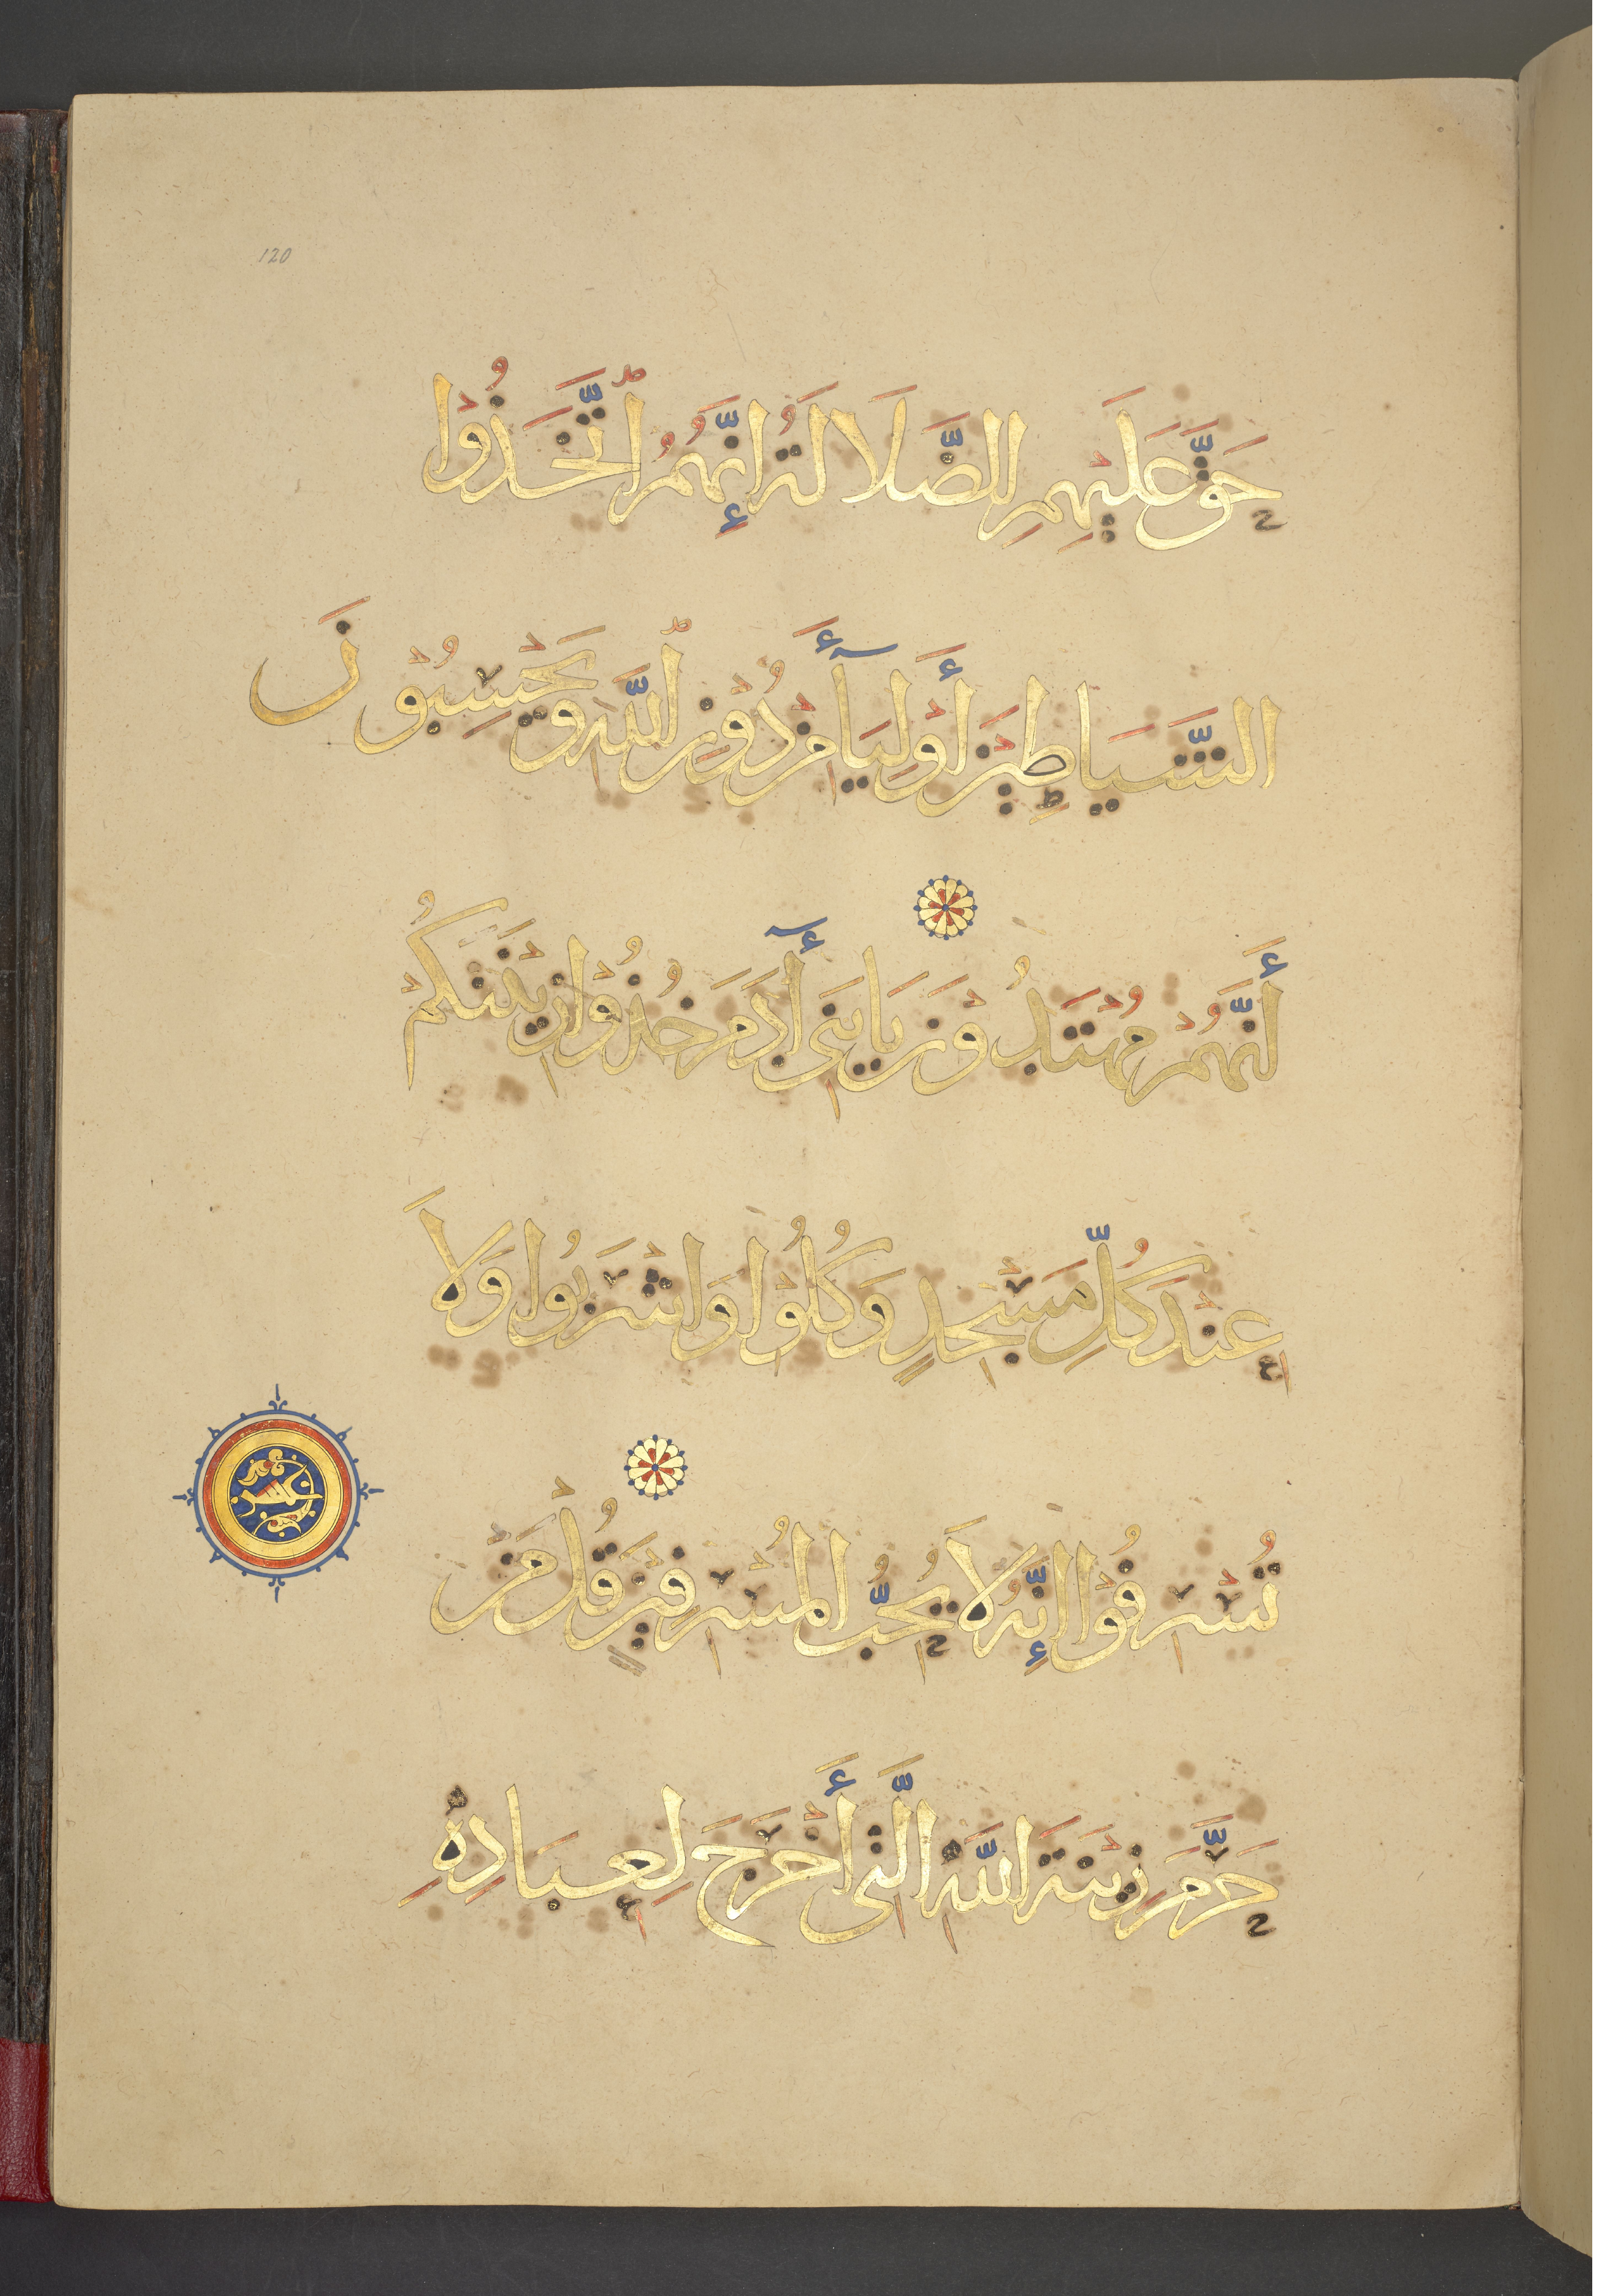 120
حَقَّ عَلَيْهِمِ الضَّلَالَةُ إِنَّهُمُ اتَّخَذُوا
الشَّيَاطِينَ أَوْلِيَاءَ مِنْ دُوْنِ اللَّهِ وَيَحْسِبُوْنَ
أَنَّهُمْ مُهْتَدُوْنَ يَا بَنِي آدَمَ خُذُوْا زِيْنَتَكُمْ
عِنْدَ كُلِّ مَسْجِدٍ وَكُلُوْا وَاشْرَبُوا وَلَا
تُسْرِفُوْا إِنَّهُ لَا يُحِبُّ الْمُسْرِفِيْنَ قُلْ مَنْ
حَرَّمَ زِيْنَةَ اللَّهِ الَّتِي أَخْرَجَ لِعِبَادِهِ